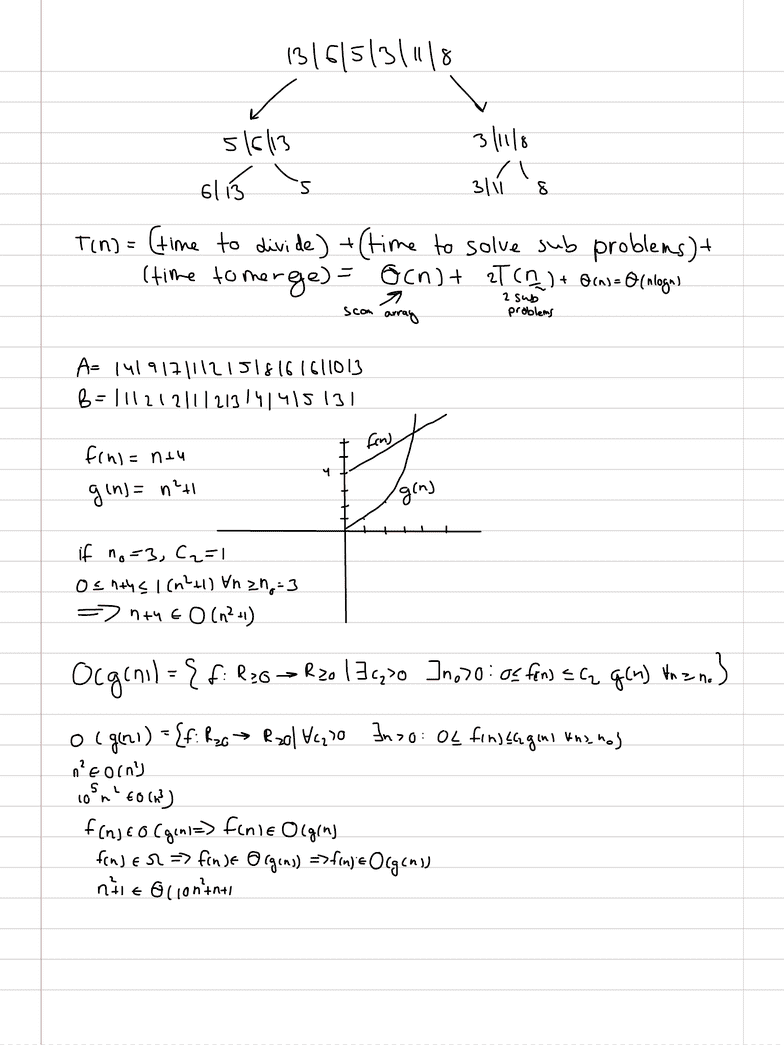 13|6|5|3|11|8
5|6|13 3|11|8
6|13 5 3|11 8
T(n) = (time to divide) + (time to solve sub problems) +
(time to merge) = Θ(n) + 2T(n/2) + Θ(n) = Θ(nlogn)
scan array 2 sub problems
A = 14|9|7|1|2|5|8|6|6|10|3
B = |1|2|2|1|2|3|4|4|5|3|
f(n) = n+4
g(n) = n²+1
f(n)
4
g(n)
if n₀=3, C₂=1
0 ≤ n+4 ≤ 1(n²+1) ∀n ≥ n₀=3
⟹ n+4 ∈ O(n²+1)
O(g(n)) = { f: R≥0 → R≥0 | ∃c₂>0 ∃n₀>0: 0≤ f(n) ≤ c₂ g(n) ∀n ≥ n₀ }
o(g(n)) = {f: R≥0 → R≥0 | ∀c₂>0 ∃n>0: 0≤ f(n)≤c₂g(n) ∀n≥n₀}
n² ∈ o(n³)
10⁵n² ∈ o(n³)
f(n) ∈ o(g(n) => f(n) ∈ O(g(n)
f(n) ∈ Ω => f(n) ∈ Θ(g(n)) => f(n) ∈ O(g(n))
n²+1 ∈ Θ(10n²+n+1